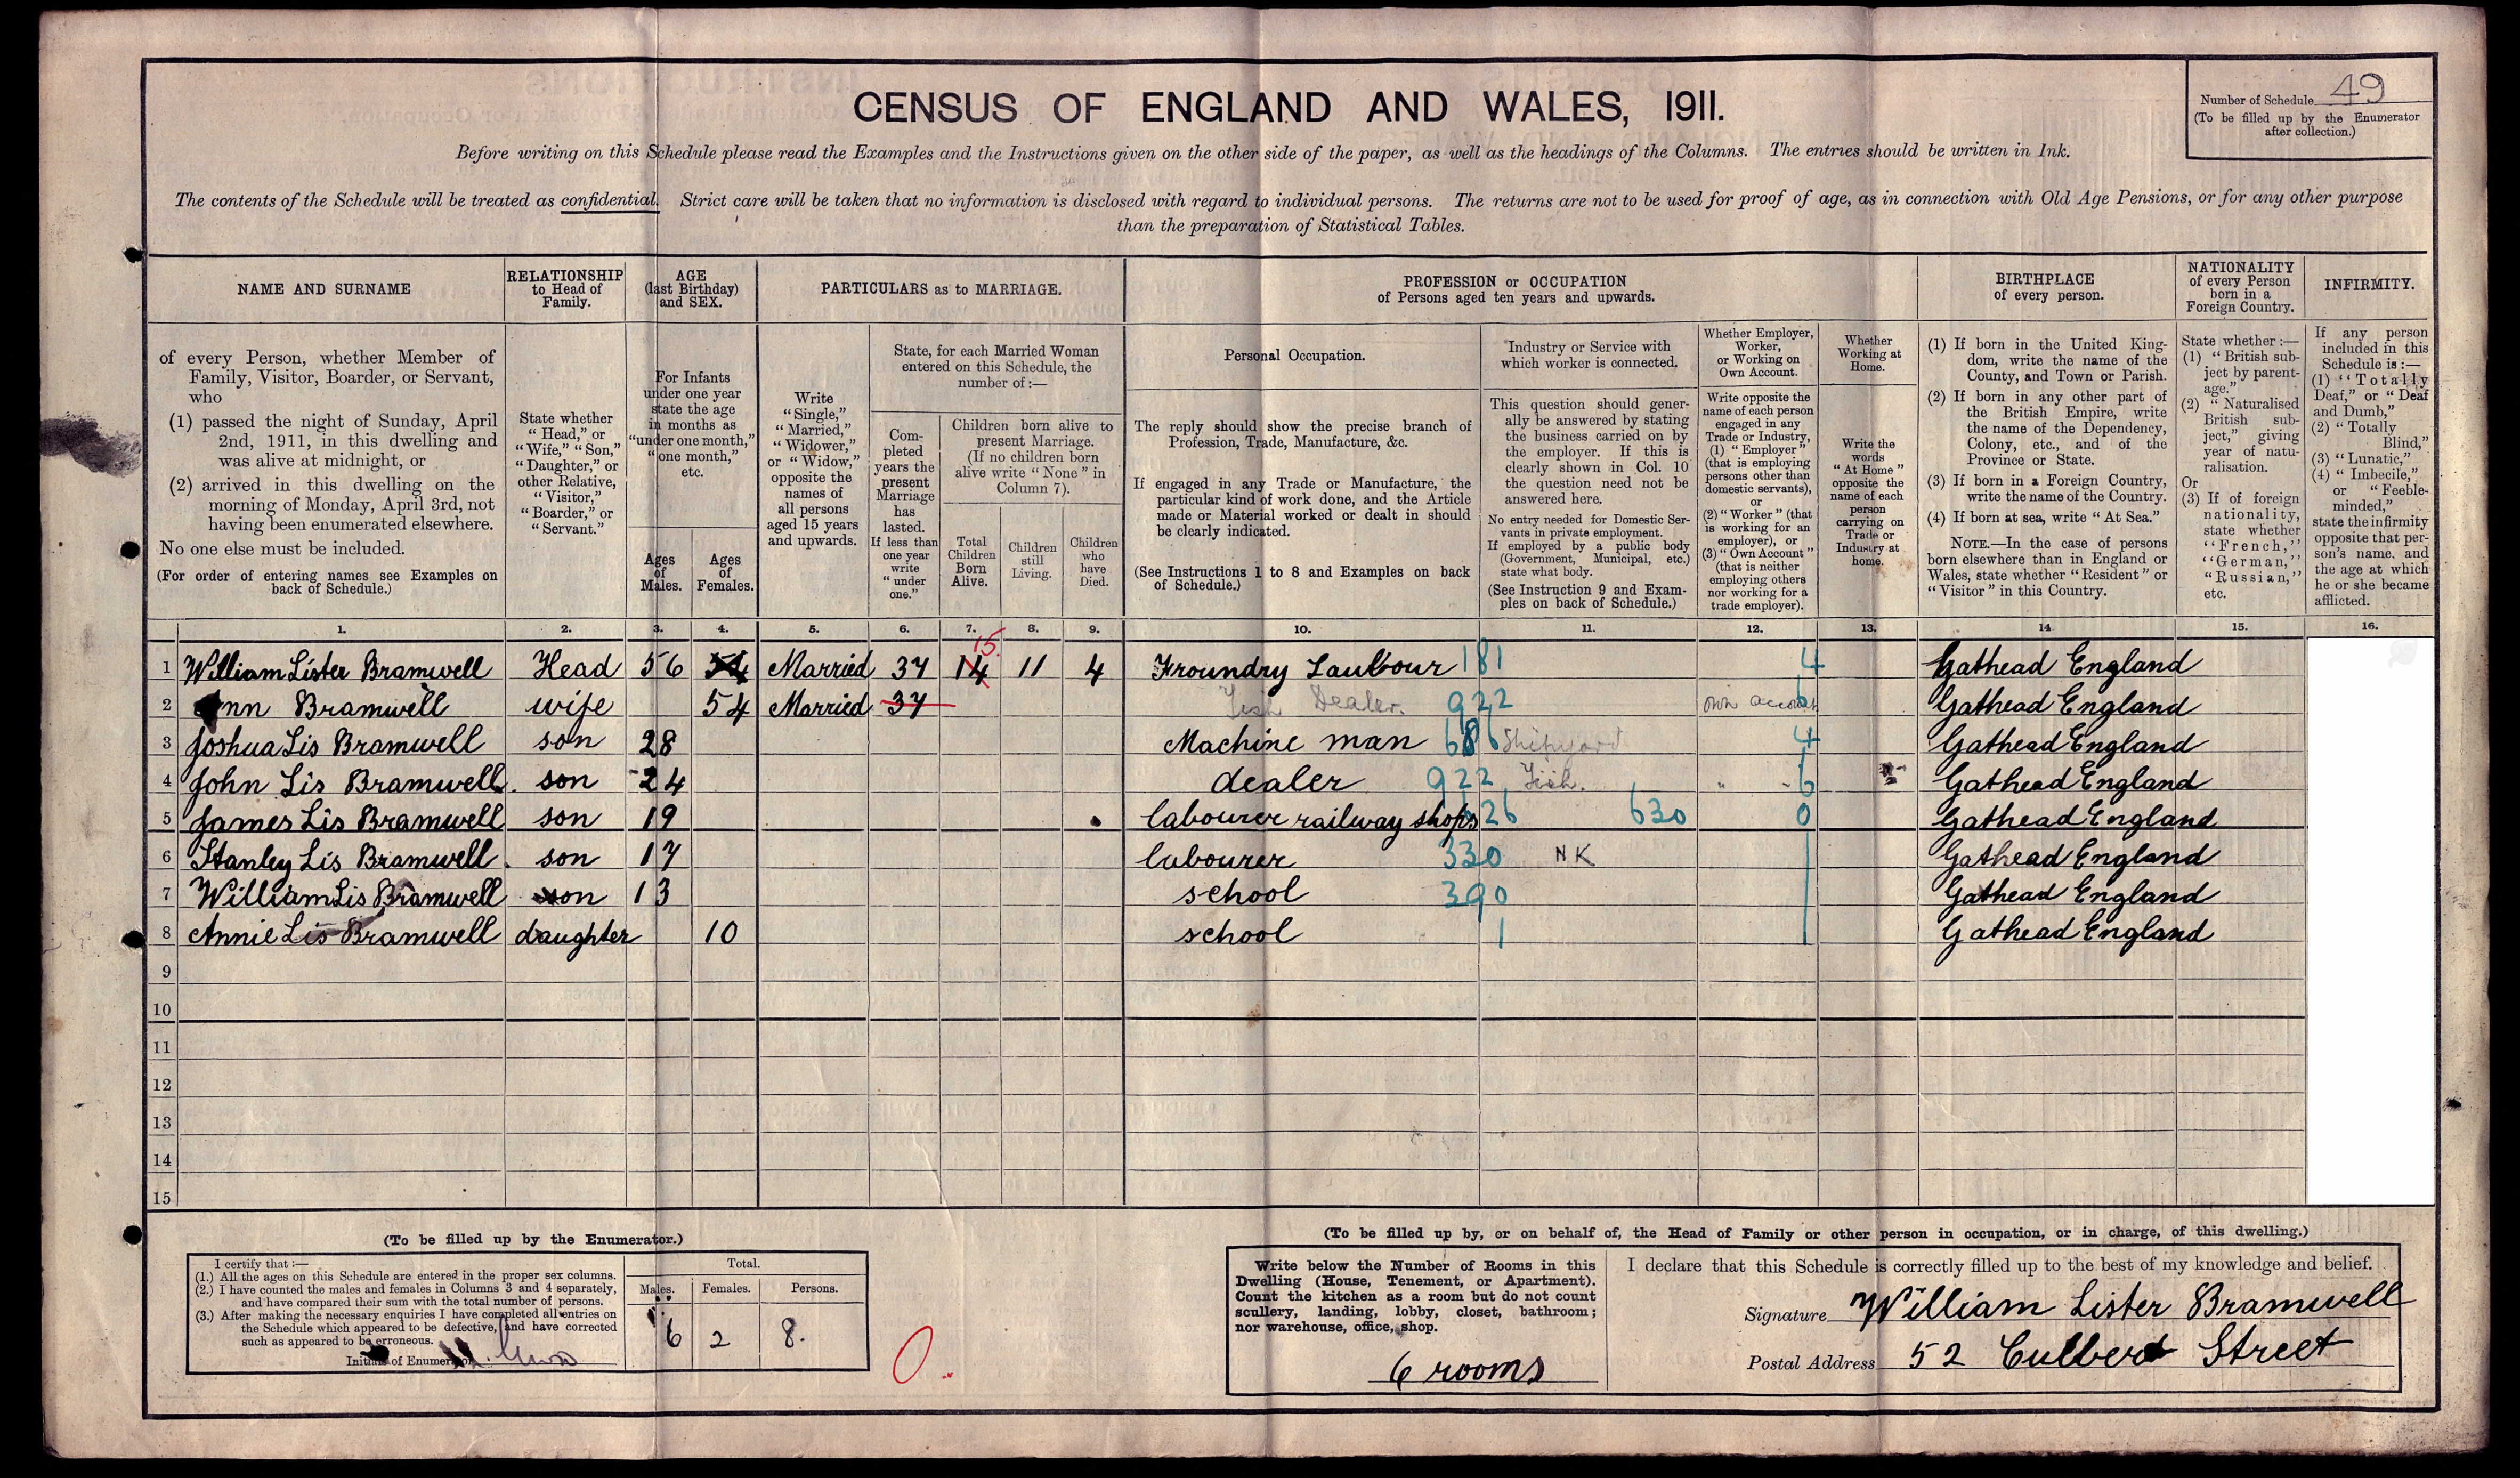 CENSUS OF ENGLAND AND WALES, 1911.
Number of Schedule 49
(To be filled up by the Enumerator
after collection.)
Before writing on this Schedule please read the Examples and the Instructions given on the other side of the paper, as well as the headings of the Columns. The entries should be written in Ink.
The contents of the Schedule will be treated as confidential. Strict care will be taken that no information is disclosed with regard to individual persons. The returns are not to be used for proof of age, as in connection with Old Age Pensions, or for any other purpose
than the preparation of Statistical Tables.
NAME AND SURNAME
of every Person, whether Member of
Family, Visitor, Boarder, or Servant,
who
(1) passed the night of Sunday, April
2nd, 1911, in this dwelling and
was alive at midnight, or
(2) arrived in this dwelling on the
morning of Monday, April 3rd, not
having been enumerated elsewhere.
No one else must be included.
(For order of entering names see Examples on
back of Schedule.)
RELATIONSHIP
to Head of
Family.
State whether
"Head," or
"Wife," "Son,"
"Daughter," or
other Relative,
"Visitor,"
"Boarder," or
"Servant."
AGE
(last Birthday)
and SEX.
For Infants
under one year
state the age
in months as
"under one month,"
"one month,"
etc.
Ages
of
Males.
Ages
of
Females.
PARTICULARS as to MARRIAGE.
Write
"Single,"
"Married,"
"Widower,"
or "Widow,"
opposite the
names of
all persons
aged 15 years
and upwards.
State, for each Married Woman
entered on this Schedule, the
number of:—
Com-
pleted
years the
present
Marriage
has
lasted.
If less than
one year
write
"under
one."
Children born alive to
present Marriage.
(If no children born
alive write "None" in
Column 7).
Total
Children
Born
Alive.
Children
still
Living.
Children
who
have
Died.
PROFESSION or OCCUPATION
of Persons aged ten years and upwards.
Personal Occupation.
The reply should show the precise branch of
Profession, Trade, Manufacture, &c.
If engaged in any Trade or Manufacture, the
particular kind of work done, and the Article
made or Material worked or dealt in should
be clearly indicated.
(See Instructions 1 to 8 and Examples on back
of Schedule.)
Industry or Service with
which worker is connected.
This question should gener-
ally be answered by stating
the business carried on by
the employer. If this is
clearly shown in Col. 10
the question need not be
answered here.
No entry needed for Domestic Ser-
vants in private employment.
If employed by a public body
(Government, Municipal, etc.)
state what body.
(See Instruction 9 and Exam-
ples on back of Schedule.)
Whether Employer,
Worker,
or Working on
Own Account.
Write opposite the
name of each person
engaged in any
Trade or Industry,
(1) "Employer"
(that is employing
persons other than
domestic servants),
or
(2) "Worker" (that
is working for an
employer), or
(3) "Own Account"
(that is neither
employing others
nor working for a
trade employer).
Whether
Working at
Home.
Write the
words
"At Home"
opposite the
name of each
person
carrying on
Trade or
Industry at
home.
BIRTHPLACE
of every person.
(1) If born in the United King-
dom, write the name of the
County, and Town or Parish.
(2) If born in any other part of
the British Empire, write
the name of the Dependency,
Colony, etc., and of the
Province or State.
(3) If born in a Foreign Country,
write the name of the Country.
(4) If born at sea, write "At Sea."
NOTE.—In the case of persons
born elsewhere than in England or
Wales, state whether "Resident" or
"Visitor" in this Country.
NATIONALITY
of every Person
born in a
Foreign Country.
State whether:—
(1) "British sub-
ject by parent-
age."
(2) "Naturalised
British sub-
ject," giving
year of natu-
ralisation.
Or
(3) If of foreign
nationality,
state whether
"French,"
"German,"
"Russian,"
etc.
INFIRMITY.
If any person
included in this
Schedule is:—
(1) "Totally
Deaf," or "Deaf
and Dumb,"
(2) "Totally
Blind,"
(3) "Lunatic,"
(4) "Imbecile,"
or "Feeble-
minded,"
state the infirmity
opposite that per-
son's name, and
the age at which
he or she became
afflicted.
1. 2. 3. 4. 5. 6. 7. 8. 9. 10. 11. 12. 13. 14 15. 16.
15.
1 William Lister Bramwell Head 56 54 Married 37 14 11 4 Froundry Laubour 181 4 Gathead England
2 Ann Bramwell wife 54 Married 37 Fish Dealer. 922 own account 6 Gathead England
3 Joshua Lis Bramwell son 28 Machine man 686 Shipyard 4 Gathead England
4 John Lis Bramwell. son 24 dealer 922 Fish. " 6 Gathead England
5 James Lis Bramwell son 19 labourer railway shops 26 630 0 Gathead England
6 Stanley Lis Bramwell. son 17 labourer 330 NK Gathead England
7 William Lis Bramwell son 13 school 390 Gathead England
8 Annie Lis Bramwell daughter 10 school Gathead England
9
10
11
12
13
14
15
(To be filled up by the Enumerator.)
I certify that:—
(1.) All the ages on this Schedule are entered in the proper sex columns.
(2.) I have counted the males and females in Columns 3 and 4 separately,
and have compared their sum with the total number of persons.
(3.) After making the necessary enquiries I have completed all entries on
the Schedule which appeared to be defective, and have corrected
such as appeared to be erroneous.
Initials of Enumerator
Total.
Males. Females. Persons.
6 2 8.
0.
(To be filled up by, or on behalf of, the Head of Family or other person in occupation, or in charge, of this dwelling.)
Write below the Number of Rooms in this
Dwelling (House, Tenement, or Apartment).
Count the kitchen as a room but do not count
scullery, landing, lobby, closet, bathroom;
nor warehouse, office, shop.
6 rooms
I declare that this Schedule is correctly filled up to the best of my knowledge and belief.
Signature William Lister Bramwell
Postal Address 52 Culbert Street